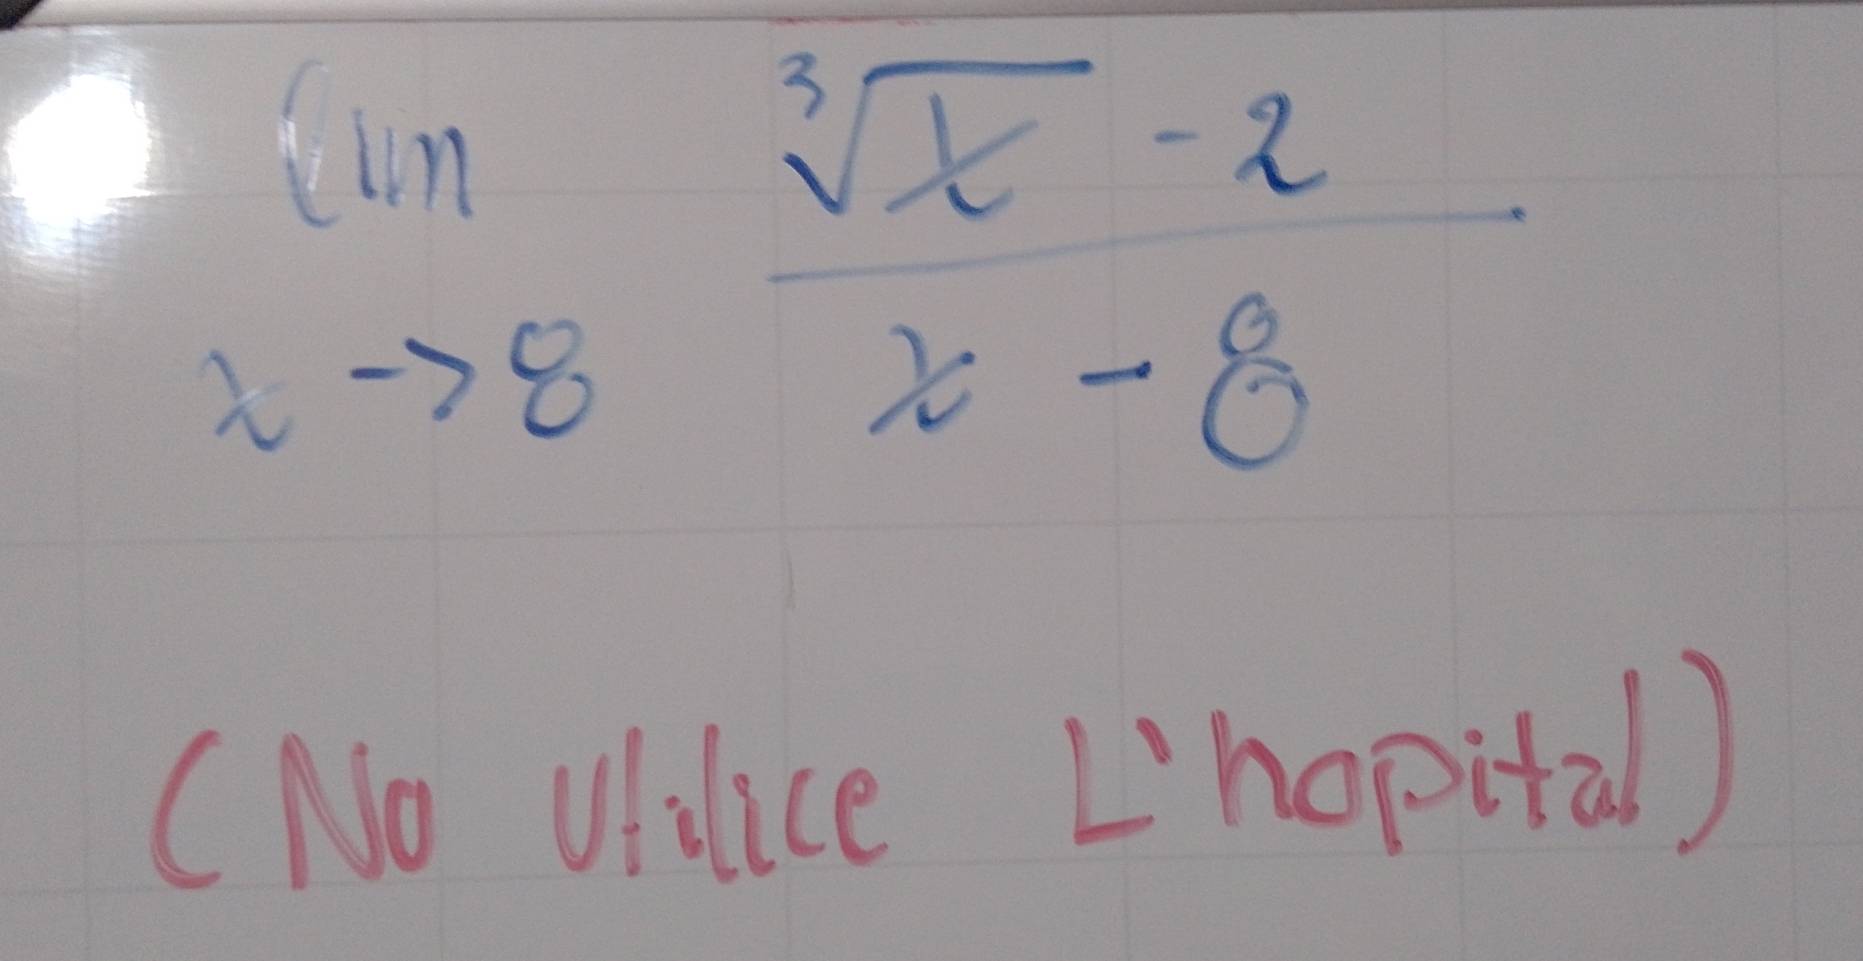 lim ∛x - 2
x -> 8 x - 8
(No Utilice L'hopital)